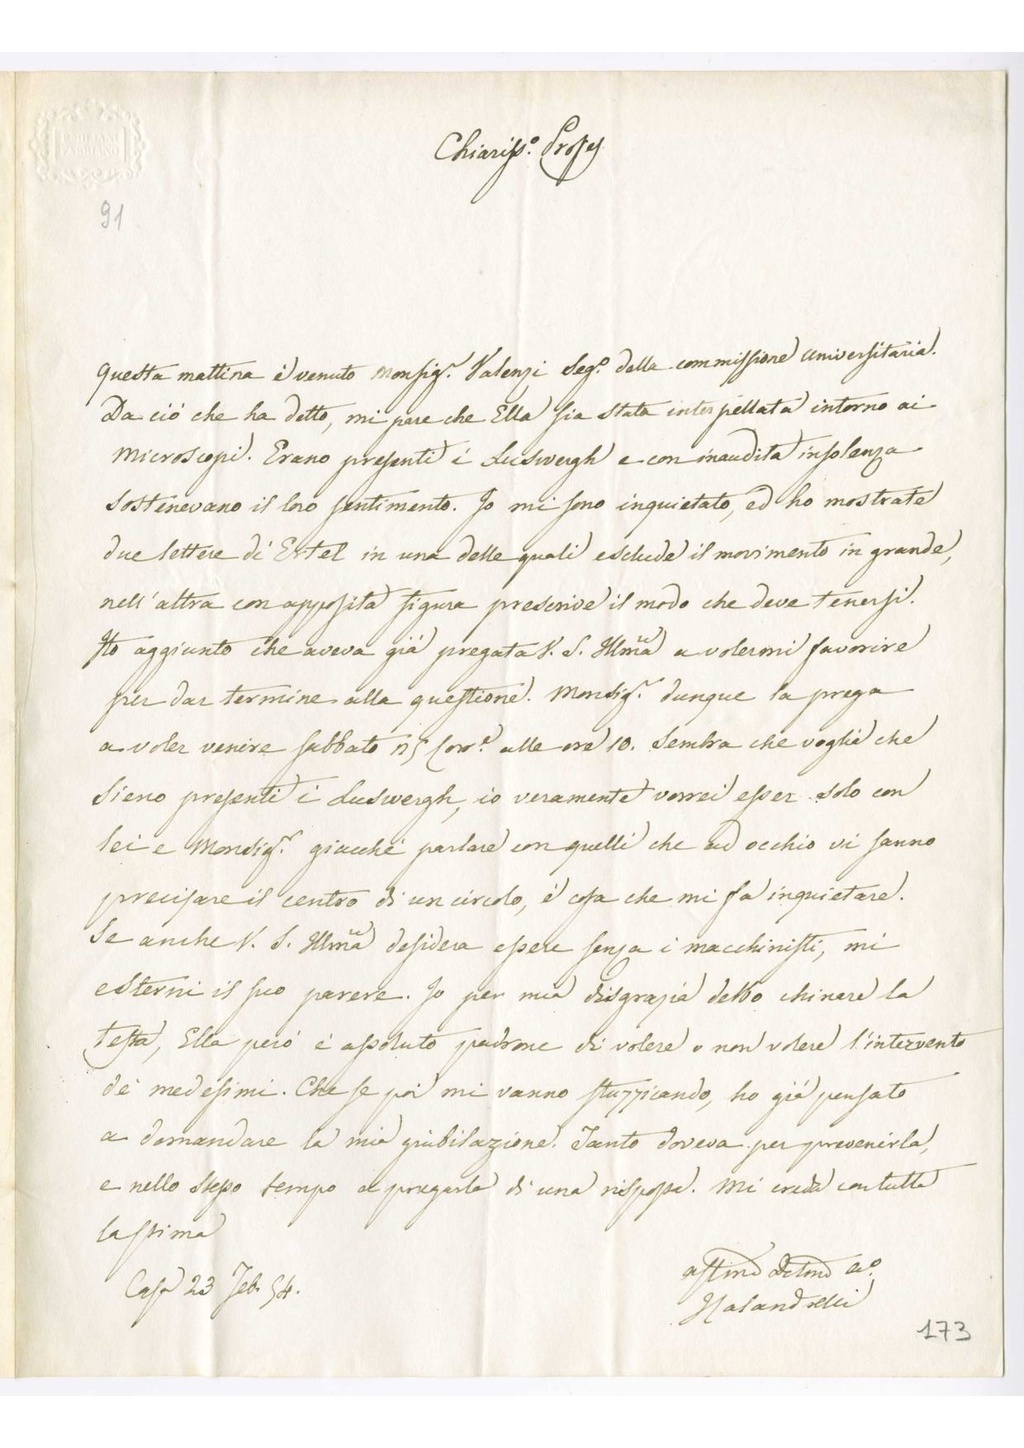 Chiariss.º Profes
91
Questa mattina é venuto Monsig.r Valenzi Seg.º della commissione universitaria.
Da ció che ha detto, mi pare che Ella sia stata interpellata intorno ai
microscopi. Erano presenti i Luswergh e con inaudita insolenza
sostenevano il loro sentimento. Io mi sono inquietato, ed ho mostrate
due lettere di Ertel in una delle quali esclude il movimento in grande,
nell'altra con apposita figura prescrive il modo che deve tenersi.
Ho aggiunto che aveva giá pregata V. S. Illma a volermi favorire
per dar termine alla questione. Monsig.r dunque la prega
a voler venire sabbato 25 Corr.e alle ore 10. Sembra che voglia che
sieno presenti i Luswergh, io veramente vorrei esser solo con
lei e Monsig.r giacché parlare con quelli che ad occhio vi sanno
precisare il centro di un circolo, é cosa che mi fa inquietare.
Se anche V. S. Illma desidera essere senza i macchinisti, mi
esterni il suo parere. Io per mia disgrazia debbo chinare la
testa, Ella peró é assoluto padrone di volere o non volere l'intervento
de' medesimi. Che se poi mi vanno stuzzicando, ho giá pensato
a domandare la mia giubilazione. Tanto doveva per prevenirla,
e nello stesso tempo a pregarla di una risposta. Mi creda con tutta
la stima
Casa 23 Feb. 54.
173